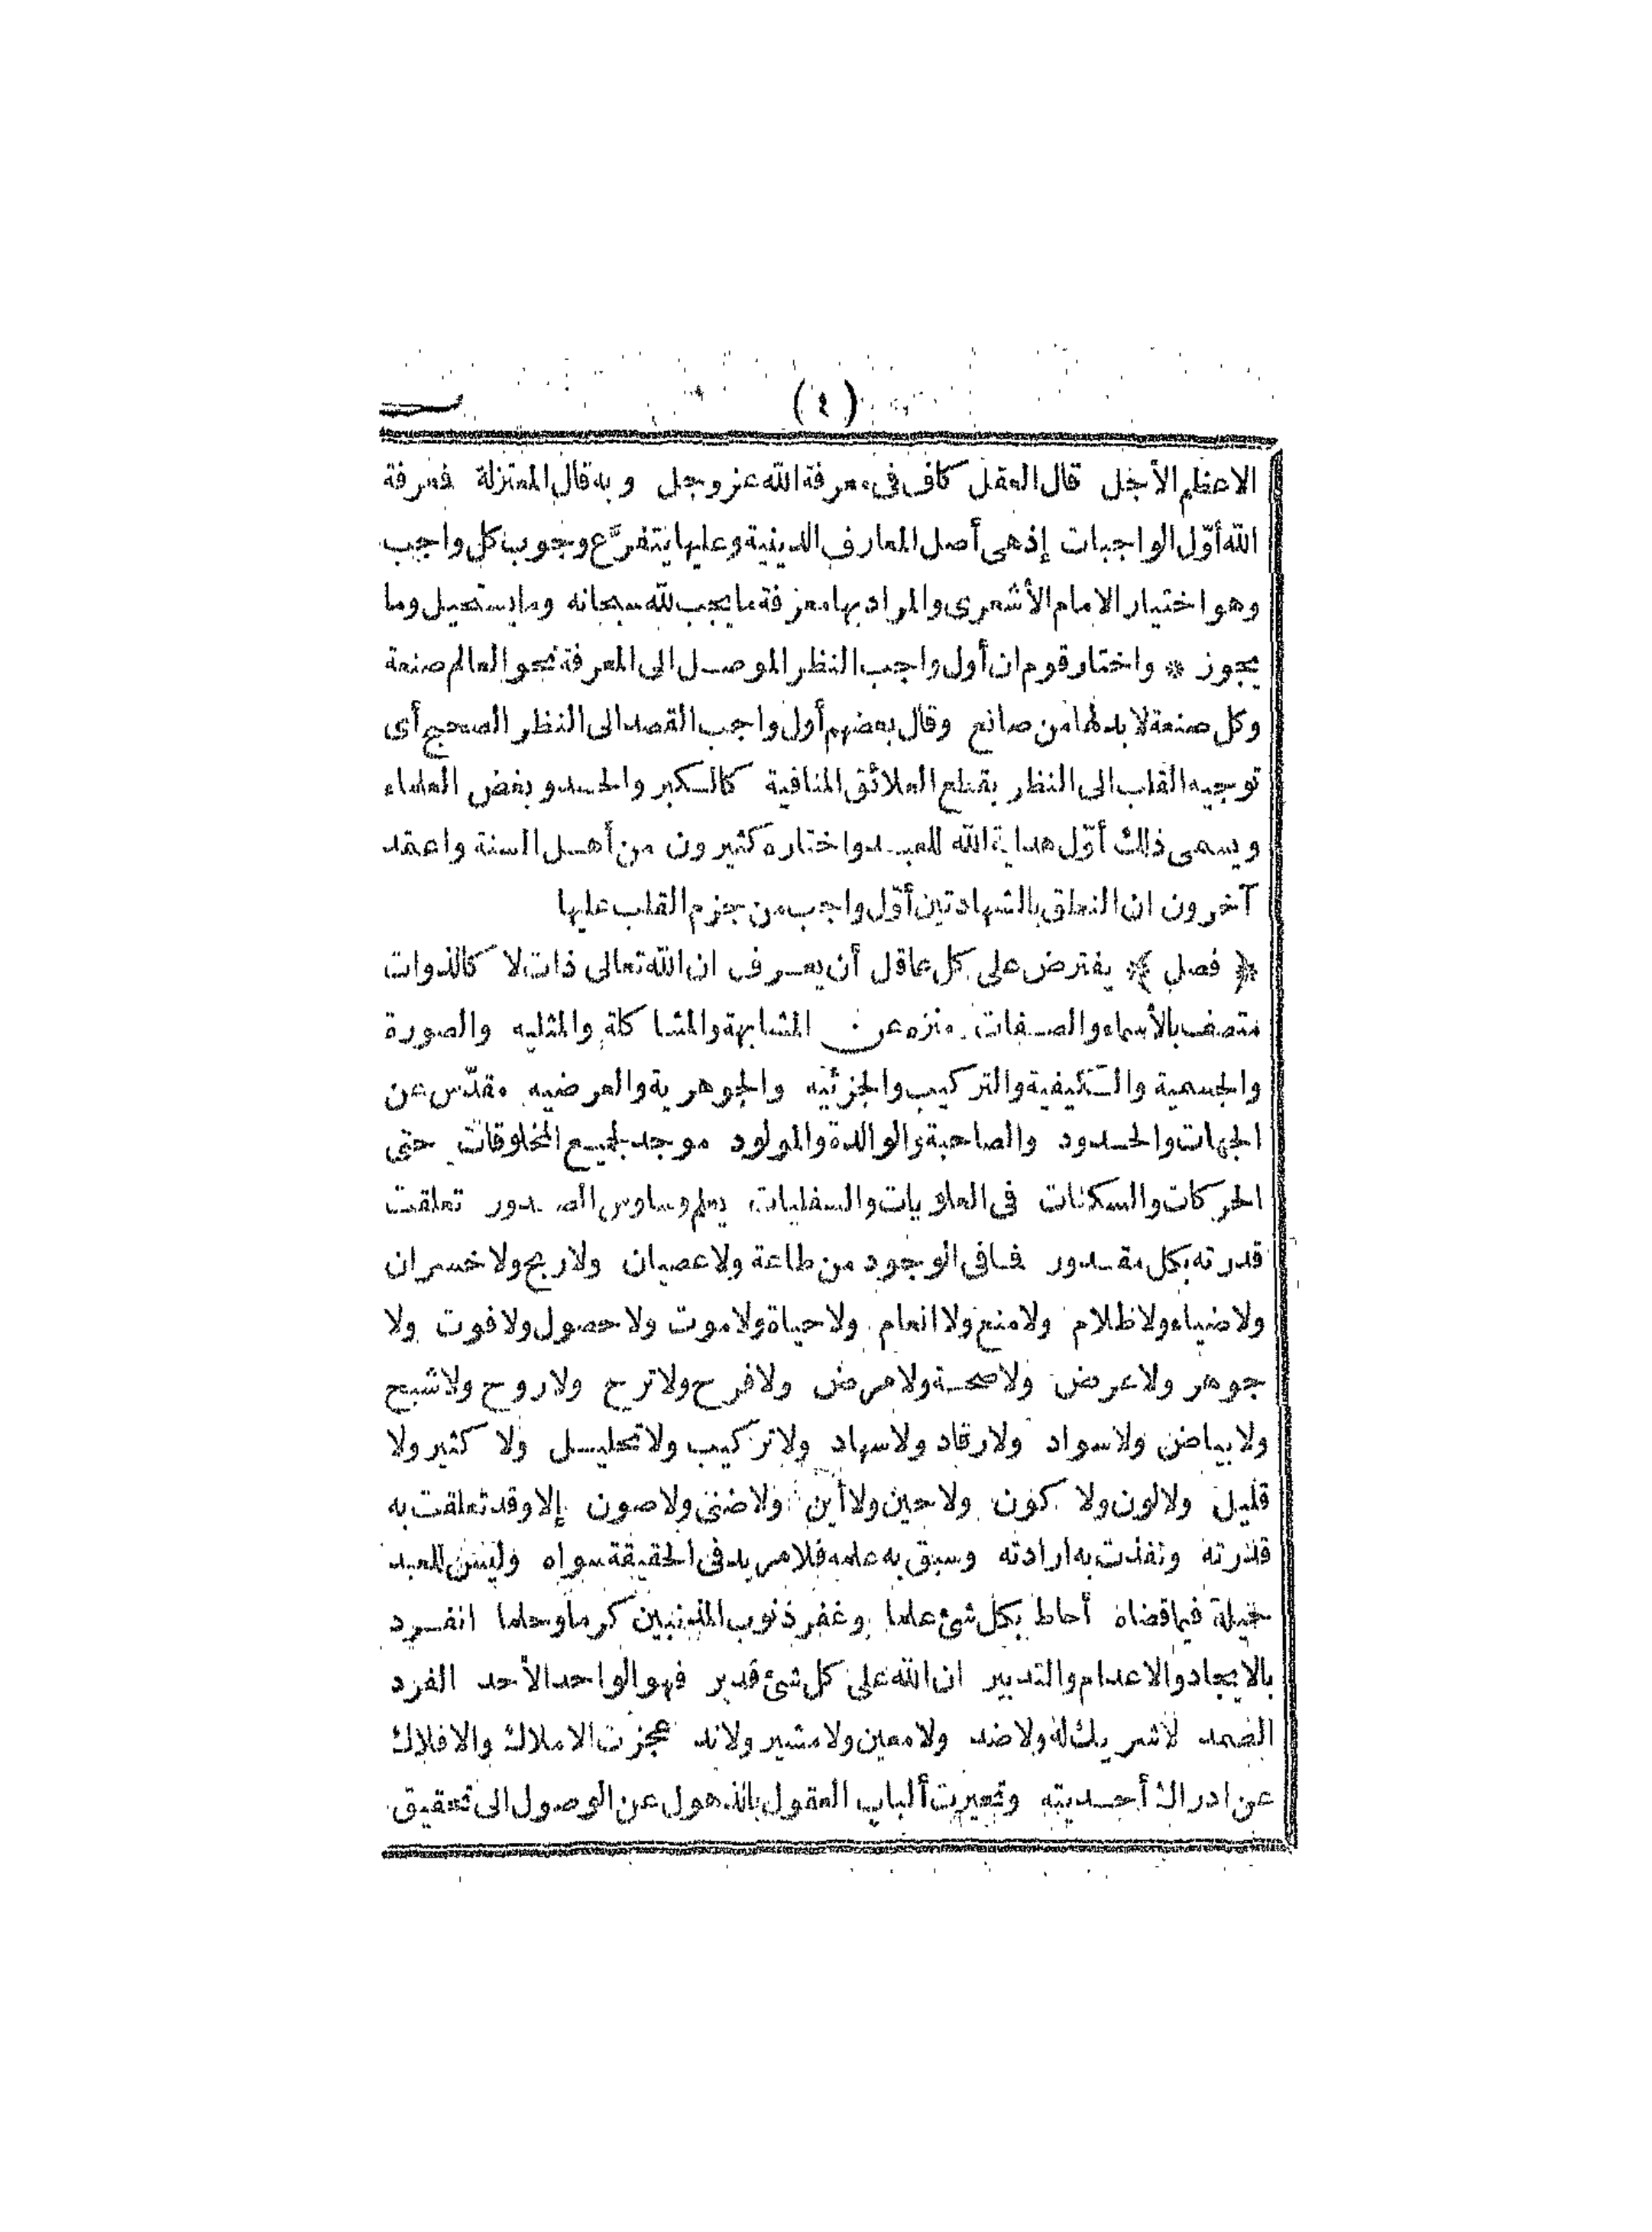 (٤)
الاعظم الأجل قال العقل كاف فى معرفة الله عز وجل وبه قال المعتزلة فمعرفة
الله أوّل الواجبات إذ هى أصل المعارف الدينية وعليها يتفرَّع وجوب كل واجب
وهو اختيار الامام الأشعرى والمراد بها معرفة ما يجب لله سبحانه وما يستحيل وما
يجوز * واختار قوم ان أول واجب النظر الموصل الى المعرفة نحو العالم صنعة
وكل صنعة لا بد لها من صانع وقال بعضهم أول واجب القصد الى النظر الصحيح أى
توجيه القلب الى النظر بقطع العلائق المنافية كالكبر والحسد وبغض العلماء
ويسمى ذلك أوّل هداية الله للعبد واختاره كثيرون من أهل السنة واعتمد
آخرون ان النطق بالشهادتين أوّل واجب من جزم القلب عليها
﴿ فصل ﴾ يفترض على كل عاقل أن يعرف ان الله تعالى ذات لا كالذوات
متصف بالأسماء والصفات منزه عن المشابهة والمشاكلة والمثليه والصورة
والجسمية والكيفية والتركيب والجزئيه والجوهرية والعرضيه مقدّس عن
الجهات والحدود والصاحبة والوالدة والمولود موجد لجميع المخلوقات حتى
الحركات والسكنات فى العلويات والسفليات يعلم وساوس الصدور تعلقت
قدرته بكل مقدور فما فى الوجود من طاعة ولا عصيان ولا ربح ولا خسران
ولا ضياء ولا ظلام ولا منع ولا انعام ولا حياة ولا موت ولا حصول ولا فوت ولا
جوهر ولا عرض ولا صحة ولا مرض ولا فرح ولا ترح ولا روح ولا شبح
ولا بياض ولا سواد ولا رقاد ولا سهاد ولا تركيب ولا تحليل ولا كثير ولا
قليل ولا لون ولا كون ولا حين ولا أين ولا ضنى ولا صون إلا وقد تعلقت به
قدرته ونفذت به ارادته وسبق به علمه فلا مريد فى الحقيقة سواه وليس للعبد
حيلة فيما قضاه أحاط بكل شئ علما وغفر ذنوب المذنبين كرما وحلما انفرد
بالايجاد والاعدام والتدبير ان الله على كل شئ قدير فهو الواحد الأحد الفرد
الصمد لا شريك له ولا ضد ولا معين ولا مشير ولا ند عجزت الاملاك والافلاك
عن ادراك أحديته وتحيرت ألباب العقول بالذهول عن الوصول الى تحقيق